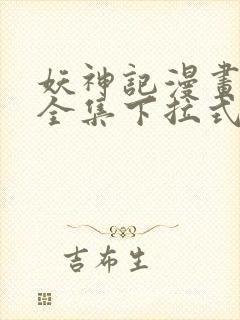 妖神記漫畫
全集下拉式
吉布生